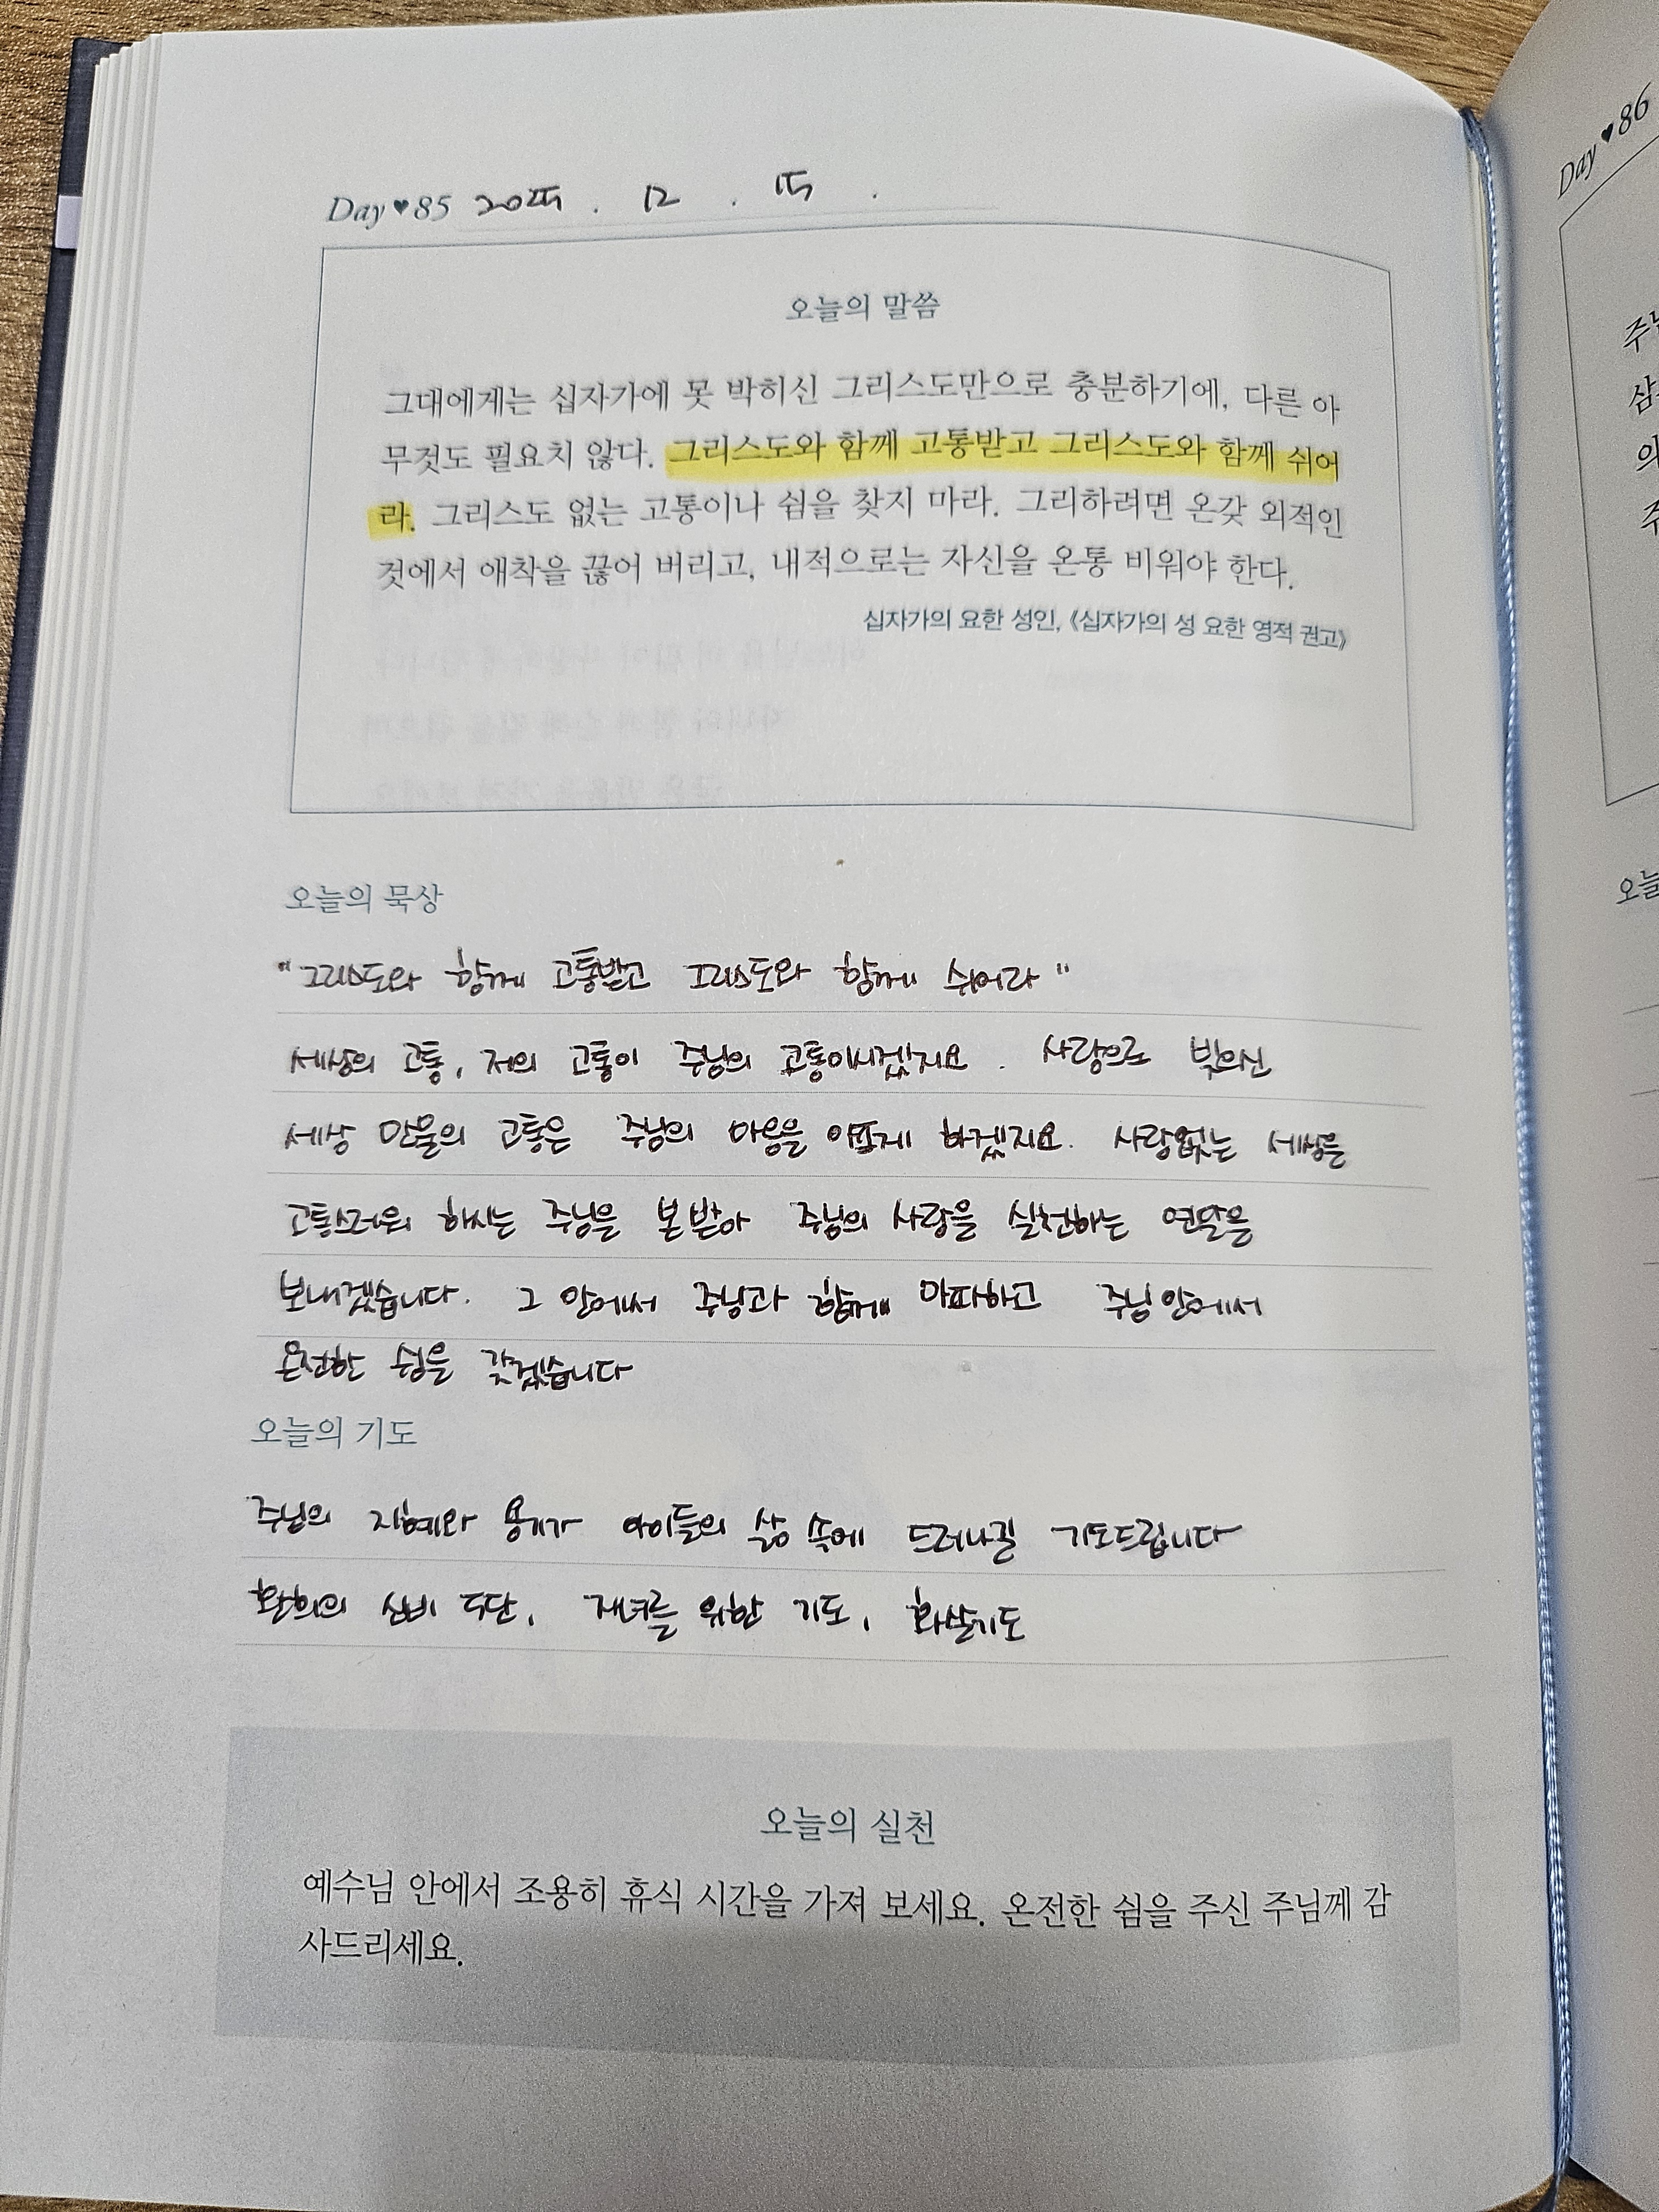 Day♥85 2025. 12. 15.
오늘의 말씀
그대에게는 십자가에 못 박히신 그리스도만으로 충분하기에, 다른 아
무것도 필요치 않다. 그리스도와 함께 고통받고 그리스도와 함께 쉬어
라. 그리스도 없는 고통이나 쉼을 찾지 마라. 그리하려면 온갖 외적인
것에서 애착을 끊어 버리고, 내적으로는 자신을 온통 비워야 한다.
십자가의 요한 성인, 《십자가의 성 요한 영적 권고》
오늘의 묵상
"그리스도와 함께 고통받고 그리스도와 함께 쉬어라"
세상의 고통, 저의 고통이 주님의 고통이시겠지요. 사랑으로 빚으신
세상 만물의 고통은 주님의 마음을 아프게 하겠지요. 사랑없는 세상을
고통스러워 하시는 주님을 본받아 주님의 사랑을 실천하는 연말을
보내겠습니다. 그 안에서 주님과 함께 아파하고 주님 안에서
온전한 쉼을 갖겠습니다
오늘의 기도
주님의 지혜와 용기가 아이들의 삶 속에 드러나길 기도드립니다
환희의 신비 5단, 자녀를 위한 기도, 화살기도
오늘의 실천
예수님 안에서 조용히 휴식 시간을 가져 보세요. 온전한 쉼을 주신 주님께 감
사드리세요.
Day♥86
주님
의
주
오늘